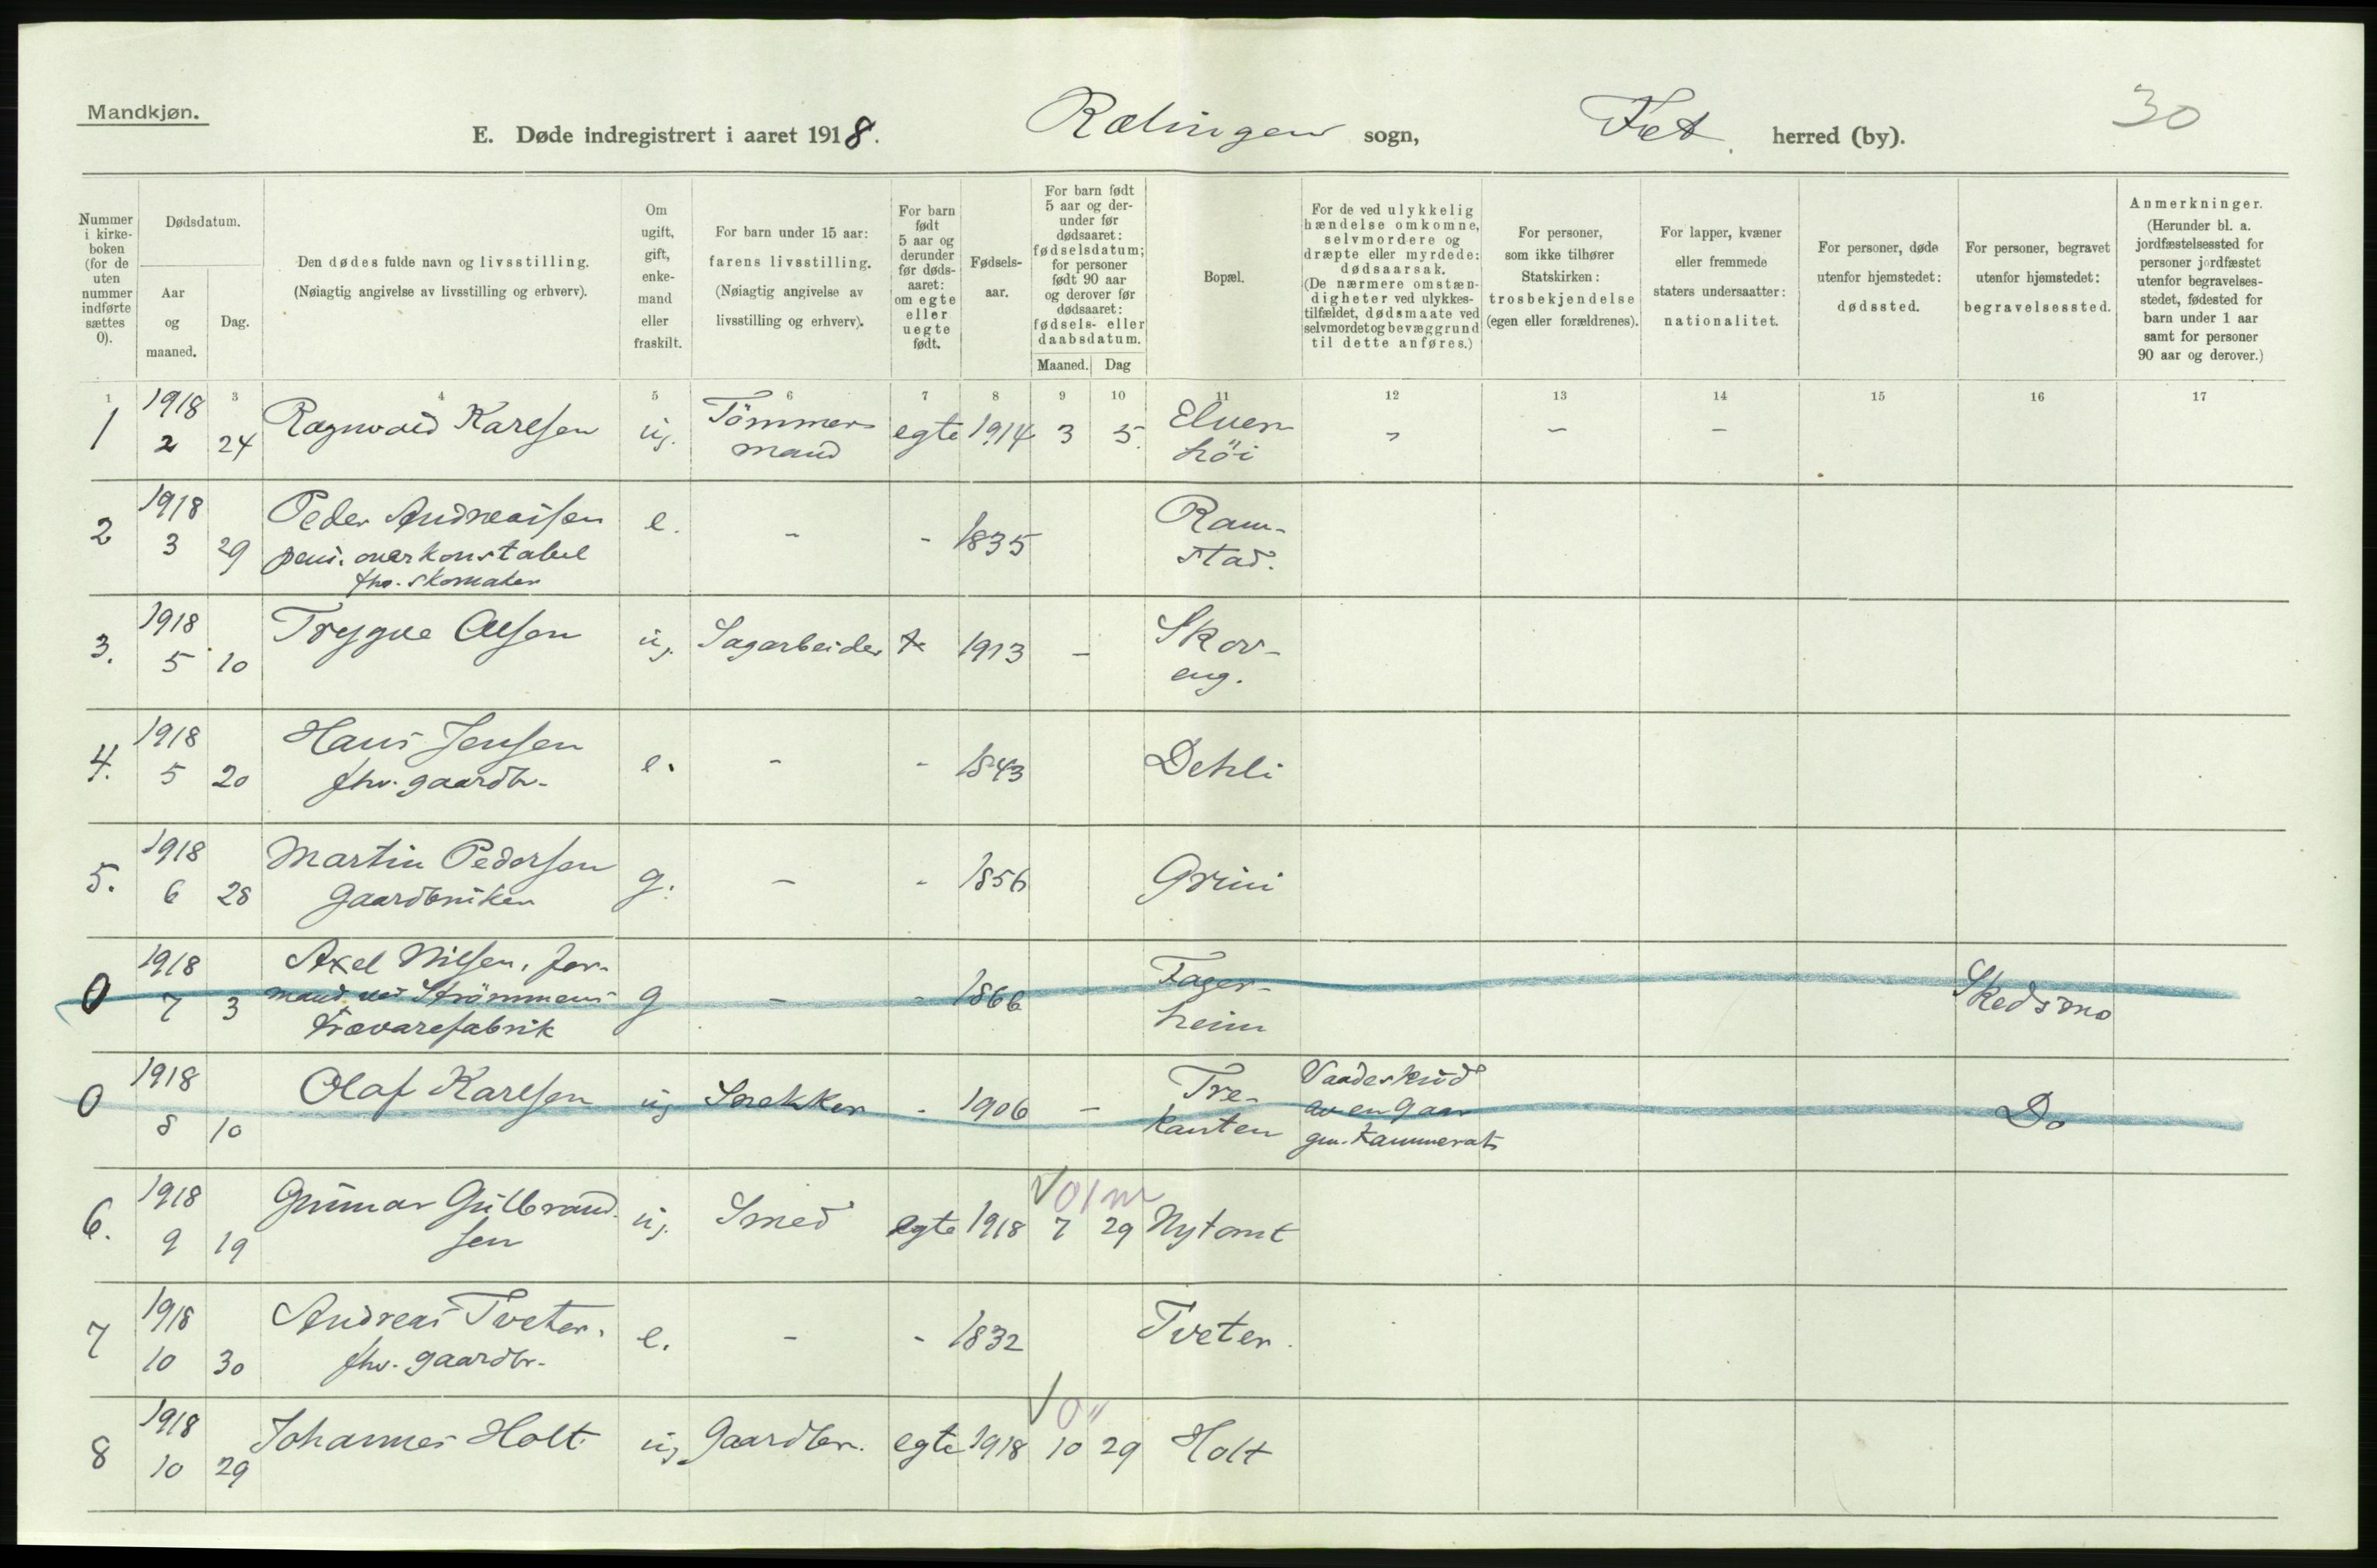 Mandkjøn.
E. Døde indregistrert i aaret 1918. Rælingen sogn, Fet herred (by).
30
Nummer i kirke-boken (for de uten nummer indførte sættes 0).
Dødsdatum.
Aar og maaned.
Dag.
Den dødes fulde navn og livsstilling.
(Nøiagtig angivelse av livsstilling og erhverv).
Om ugift, gift, enke-mand eller fraskilt.
For barn under 15 aar: farens livsstilling. (Nøiagtig angivelse av livsstilling og erhverv).
For barn født 5 aar og derunder før døds-aaret: om egte eller uegte født.
Fødsels-aar.
For barn født 5 aar og der-under før dødsaaret: fødselsdatum; for personer født 90 aar og derover før dødsaaret: fødsels- eller daabsdatum.
Maaned. Dag
Bopæl.
For de ved ulykkelig hændelse omkomne, selvmordere og dræpte eller myrdede: dødsaarsak. (De nærmere omstæn-digheter ved ulykkes-tilfældet, dødsmaate ved selvmordet og bevæggrund til dette anføres.)
For personer, som ikke tilhører Statskirken: trosbekjendelse (egen eller forældrenes).
For lapper, kvæner eller fremmede staters undersaatter: nationalitet.
For personer, døde utenfor hjemstedet: dødssted.
For personer, begravet utenfor hjemstedet: begravelsessted.
Anmerkninger. (Herunder bl. a. jordfæstelsessted for personer jordfæstet utenfor begravelses-stedet, fødested for barn under 1 aar samt for personer 90 aar og derover.)
1 3 4 5 6 7 8 9 10 11 12 13 14 15 16 17
1 1918 2 24 Ragnvald Karlsen ug. Tömmer-mand egte 1914 3 5. Elven-höi - - -
2 1918 3 29 Peder Andreassen
pens. overkonstabel
fhv. skomaker e. - - 1835 Ram-stad.
3. 1918 5 10 Trygve Olsen ug. Sagarbeider 1913 - Skov-eng.
4. 1918 5 20 Hans Jensen
fhv. gaardbr. e. - - 1843 Dehli
5. 1918 6 28 Martin Pedersen
Gaardbruker g. - - 1856 Grini
0 1918 7 3 Axel Nilsen, for-
mand ved Strömmens
Trævarefabrik g - - 1866 Fager-heim Skedsmo
0 1918 8 10 Olaf Karlsen ug Snekker - 1906 - Tre-kanten Vaadeskud av en gam kammerat Do
6. 1918 9 19 Gunnar Gulbrand-
sen ug. Smed egte 1918 7 29 Nytomt
√ 0/m
7 1918 10 30 Andreas Tveter.
fhv. gaardbr. e. - - 1832 Tveter.
8 1918 10 29 Johannes Holt ug Gaardbr. egte 1918 10 29 Holt
√ 0"